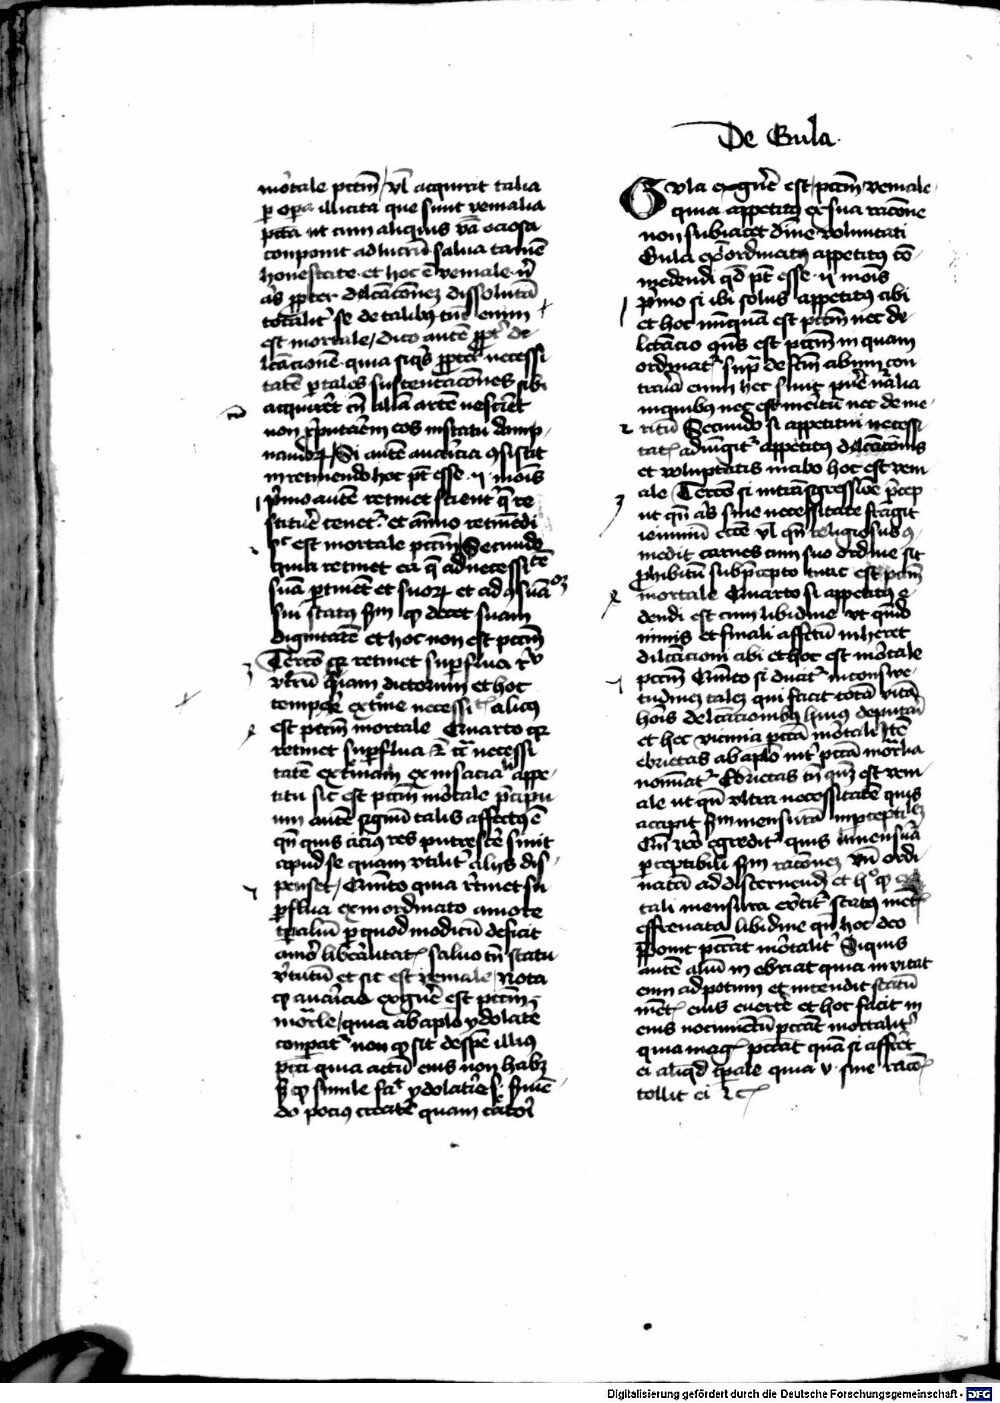 mortale pctm / vl acquirit talia
p opa illicita que sunt venialia
pctā ut cum aliquis vā ociosa
componit ad lucrū salua tamē
honestate et hoc ē veniale nͥ
totalit se de talibus enim
est mortale / dico autē ppt de
lcacionē quia siqͥs ppter necessi
tatē p tales sustentacōnes sibi
acquirēt cū illam artē nesciret
non rputarēm eos in statu damp
nandoꝝ / Si autē auaricia ꝯsistit
in retinendo hoc pt esse ·ii· moīs
pͥmo autē retinet scient q̄ re
stituē tenet et animo retinēdi
sͨ est mortale pctm Secundo
quia retinet ea q ad necessitē
suā ptinēt et suoꝝ et ad
sui status sm qͩ decet suam
dignitatē et hoc non est pctm
Tercō qꝛ retinet supflua
dictorum et hoc
tempore extͥme necessitͭ alicͥ
est pctm mortale Quarto qꝛ
retinet supflua necessi
tatē extͥmam ex insaciali appe
titu sic est pctm mōtale pͥcipu
um autē signū talis affectꝰ ē
qn quis cicius res putrescē sinit
apud se quam vtilit alijs dis
penset / Quinto quia rͥtinet su
pflua ex inordinato amore
tpaliū p quod modicū deficit
amōr libēalitatͭ saluo tn statu
vͥtutū et sic est veniale / Nota
qͩ auaricia ex gnͤe est pctm
mōrle / quia ab aplo ydolatͥe
conpatͬ non qͩ sit de spē illius
pcci quia actū eius non habꝫ
sꝫ qͩ simile fact ydolatrie s. suiē
do pocius creatē quam cātoͥ
De Gula
Gvla ex gnͤe est pctm / veniale
quia appetitus ex sua racōne
non subiacet diuīe voluntati
Gula ē inordinatus appetitus cō
medendi qd pt esse ·v· moīs
pͥmo si ibi solus appetitus cibi
et hoc nūquā est pctm nec de
lctacio qn̄s est pctm in quam
ordinatͬ supͣ de scͫ abnm con
ticiuā enim hec sunt purͤ nālia
in quibus nec est meritū nec deme
ritū Secundo si appetitui necessi
tatͭ adiūgitͬ appetitus delcacōnis
et voluptatis in cibo hoc est veni
ale / Tercō si in tͣnsgressiōe pͥcep
ut qn aͥs sine necessitate frāgit
ieiuniū eccē vl qn religiosus ꝯ
medit carnes cum suo ordine sit
phibitū sub pͥcepto tunc est pctm
mortale Quarto si appetitus e
dendi est cum libidine vt quod
nimis et finali affectu inheret
dilcacioni cibi et hoc est mōtale
pctm Quinto si ducitͬ in consue
tudinē talē qui facit totā vitā
hoīs delcacionibus huius deputatā
et hec vicinia pctā mōtali Itē
ebrietas ab aplo int pctā mōrlia
nominatͬ Ebrietas tn qnꝫ est veni
ale ut qn vltra necessitatē quis
accipit sm mensurā impceptibilē
Cum vͦo egreditͬ quis mensurā
pceptibilē sm racōnē vn ordi
natā ad discernendꝫ et hͦ qͩ ex
tali mensura euertitͬ status mētͭ
effrenata libidine qn hoc deo
pponit peccat mōtalitͬ Si quis
autē aliū inebriat quia inuitat
eum ad potum et intendit statū
mētͭ eius euertē et hoc facit in
eius nocumētū peccat mortalitͬ
quia magͭ peccat quam si afferet
ei aliqͩ tpale quia v. sine racōe
tollit ei ꝛc
Digitalisierung gefördert durch die Deutsche Forschungsgemeinschaft - DFG